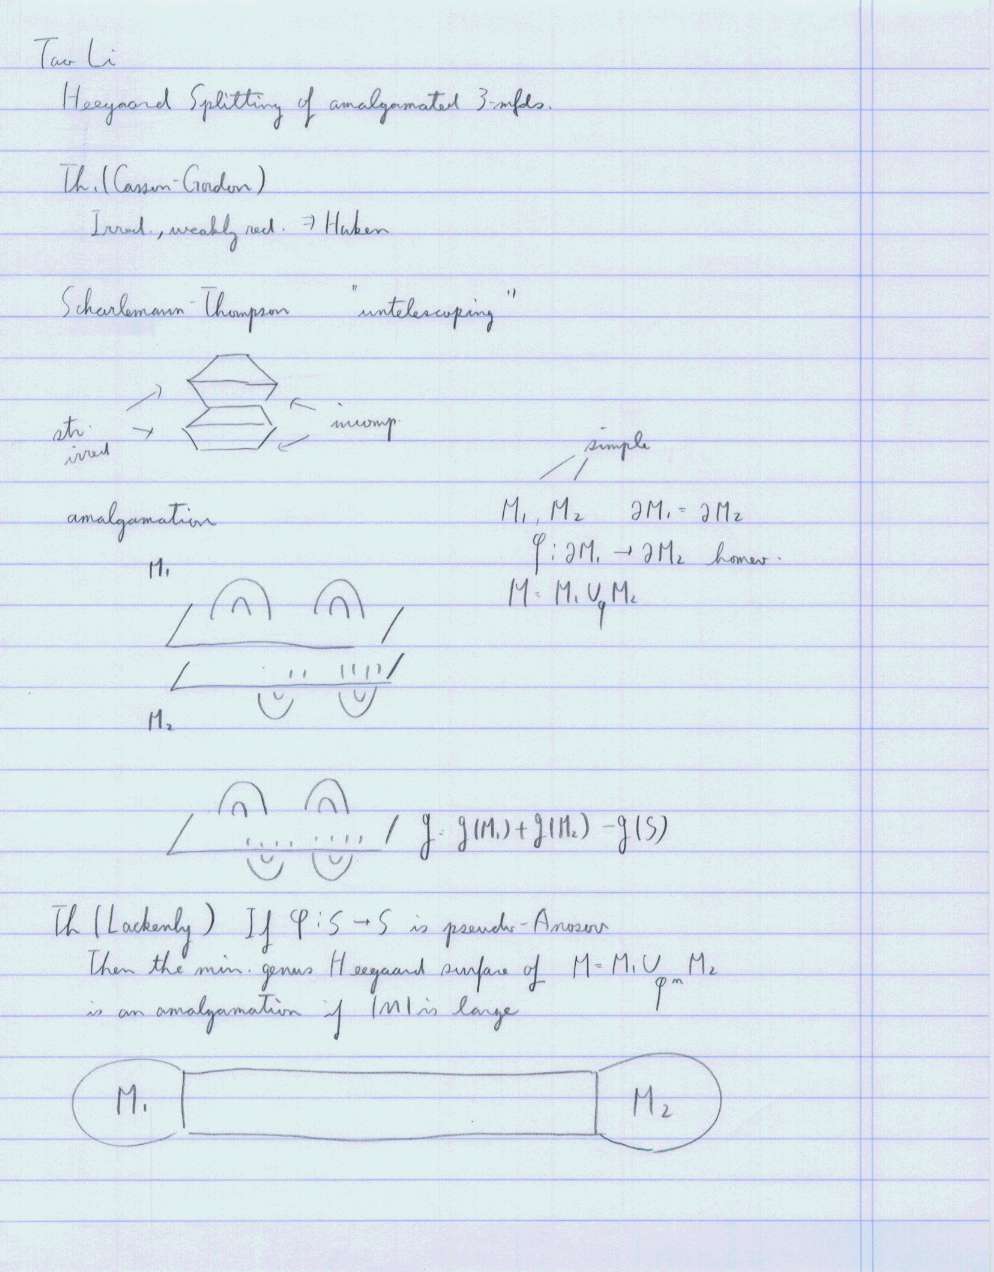 Tao Li
Heegaard Splitting of amalgamated 3-mfds.
Th. (Casson-Gordon)
Irred., weakly red. ⇒ Haken
Scharlemann-Thompson "untelescoping"
str. irred
incomp.
amalgamation
simple
M₁, M₂ ∂M₁ = ∂M₂
φ: ∂M₁ → ∂M₂ homeo.
M = M₁ ∪_φ M₂
M₁
M₂
g = g(M₁) + g(M₂) - g(S)
Th (Lackenly) If φ: S → S is pseudo-Anosov
Then the min. genus Heegaard surface of M = M₁ ∪_φⁿ M₂
is an amalgamation if |n| is large
M₁ M₂